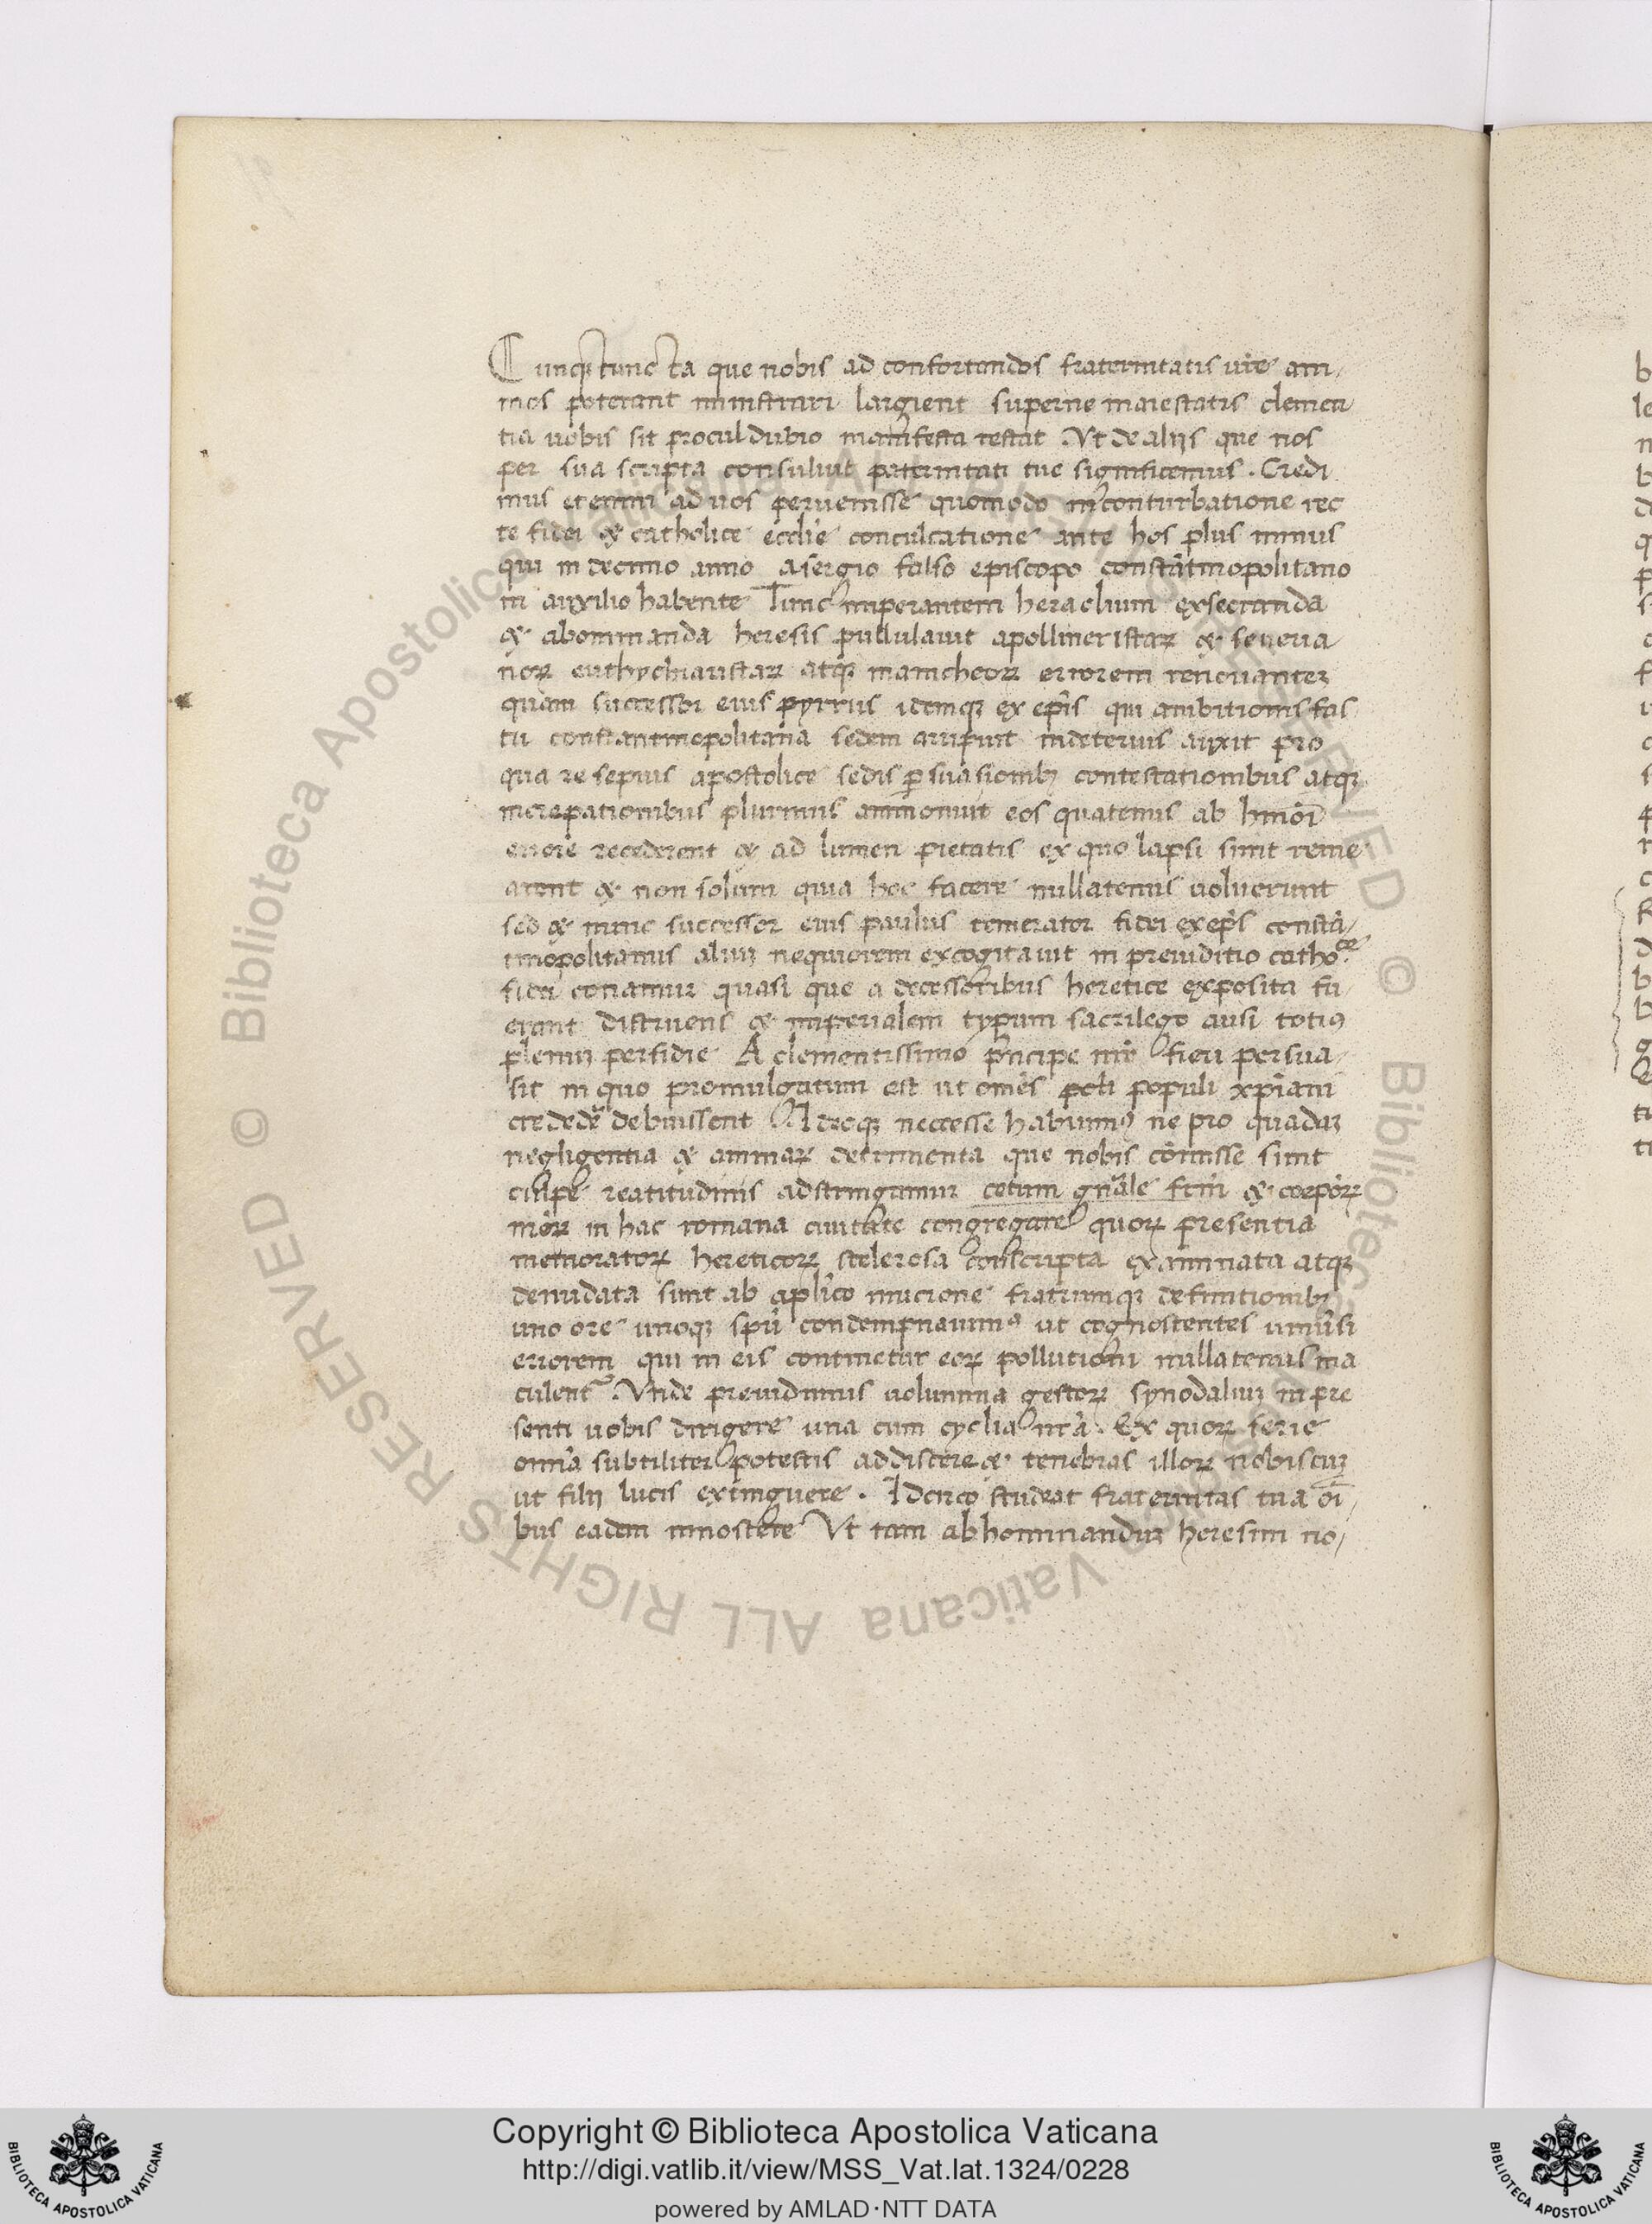 Cunctunc ta que nobis ad confortandos fraternitatis vr̄e ani
mos poterant ministrari largient superne maiestatis clemen
tia uobis sit procul dubio manifesta restat Vt de alijs que nos
per sua scripta consuluit paternitati tue significemus. Credi
mus etenim ad uos peruenisse quomodo in conturbatione rec
te fidei & catholice eccl̄ie conculcatione ante hos plus minus
quindecimo anno a sergio falso episcopo constātinopolitano
in auxilio habente Tunc imperantem heraclium exsecranda
& abominanda heresis pullulauit apollineristaꝝ & seueria
noꝝ euthychianistaꝝ atqꝫ manicheoꝝ errorem renouanteꝫ
quam successor eius pyrrus idemqꝫ ex ep̄is qui ambitionis fas
tu constantinopolitana sedem arripuit indeterius auxit pro
qua re sepius apostolice sedis ꝑsuasionibꝫ contestationibus atqꝫ
increpationibus plurimis ammonuit eos quatenus ab hmōi
errore recederent & ad lumen pietatis ex quo lapsi sunt reme
arent & non solum quia hoc facere nullatenus uoluerunt
sed & nunc successor eius paulus temerator fidei ex ep̄s constā
tinopolitanus aliuꝫ nequiorem excogitauit in preiuditio cathoce
fidei conamur quasi que a decessoribus heretice exposita fu
erant distruens & imperialem typum sacrilego ausi totiꝰ
plenuꝫ perfidie A clementissimo p̄ncipe nr̄o fieri persua
sit in quo promulgatum est ut om̄es poti populi xp̄iani
crededēr debuissent Adeoqꝫ necesse habuimꝰ ne pro quaduꝫ
negligentia & animaꝝ detrimenta que nobis cōmisse sunt
culpe reatitudinis adstringamur cetum gnāle frm̄ & coepōꝝ
nr̄oꝝ in hac romana ciuitate congregare quoꝝ presentia
memoratoꝝ hereticoꝝ scelerosa conscripta examinata atqꝫ
denudata sunt ab aplīco mucrone fratrumqꝫ definitionibꝫ
uno ore unoqꝫ spū condempnauimꝰ ut cognoscentes uniūsi
errorem qui in eis continetur eoꝝ pollutioni nullatenus ma
culentr Vnde preuidimus uolumina gestoꝝ synodaliuꝫ in pre
senti uobis dirigere una cum cyclia nr̄a. Ex quoꝝ serie
omīa subtiliter potestis addiscere & tenebras illoꝝ nobiscuꝫ
ut filij lucis extinguere. Idcirco studeat fraternitas tua oī
bus eadem innoscere Vt tam abhominanduꝫ heresim no
Copyright © Biblioteca Apostolica Vaticana
http://digi.vatlib.it/view/MSS_Vat.lat.1324/0228
powered by AMLAD·NTT DATA